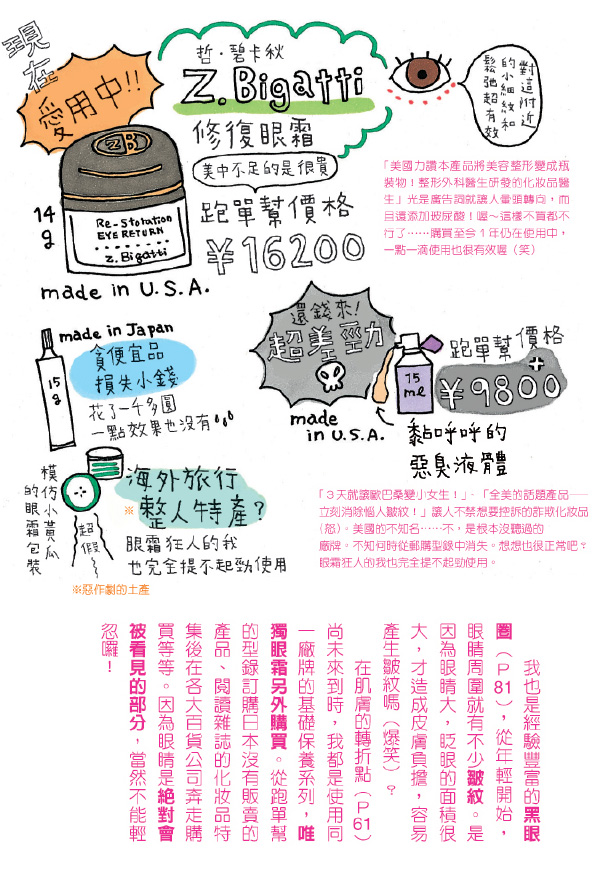 現在
愛用中!!
哲・碧卡秋
Z.Bigatti
修復眼霜
美中不足的是很貴
跑單幫價格
¥16200
14g
ZB
Re-Storation
EYE RETURN
Z.Bigatti
made in U.S.A.
對這附近
的小細紋和
鬆弛超有效
「美國力讚本產品將美容整形變成瓶
裝物!整形外科醫生研發的化妝品醫
生」光是廣告詞就讓人暈頭轉向,而
且還添加玻尿酸!喔~這樣不買都不
行了……購買至今1年仍在使用中,
一點一滴使用也很有效喔(笑)
made in Japan
15g
貪便宜品
損失小錢
花了一千多圓
一點效果也沒有
還錢來!
超差勁
made
in U.S.A.
15
ml
跑單幫價格
¥9800
黏呼呼的
惡臭液體
模仿小黃瓜
的眼霜包裝
超假
海外旅行
※整人特產?
眼霜狂人的我
也完全提不起勁使用
※惡作劇的土產
「3天就讓歐巴桑變小女生!」、「全美的話題產品——
立刻消除惱人皺紋!」讓人不禁想要控訴的詐欺化妝品
(怒)。美國的不知名……不,是根本沒聽過的
廠牌。不知何時從郵購型錄中消失。想想也很正常吧?
眼霜狂人的我也完全提不起勁使用。
我也是經驗豐富的黑眼
圈(P81),從年輕開始,
眼睛周圍就有不少皺紋。是
因為眼睛大,眨眼的面積很
大,才造成皮膚負擔,容易
產生皺紋嗎(爆笑)?
在肌膚的轉折點(P61)
尚未來到時,我都是使用同
一廠牌的基礎保養系列,唯
獨眼霜另外購買。從跑單幫
的型錄訂購日本沒有販賣的
產品、閱讀雜誌的化妝品特
集後在各大百貨公司奔走購
買等等。因為眼睛是絕對會
被看見的部分,當然不能輕
忽囉!